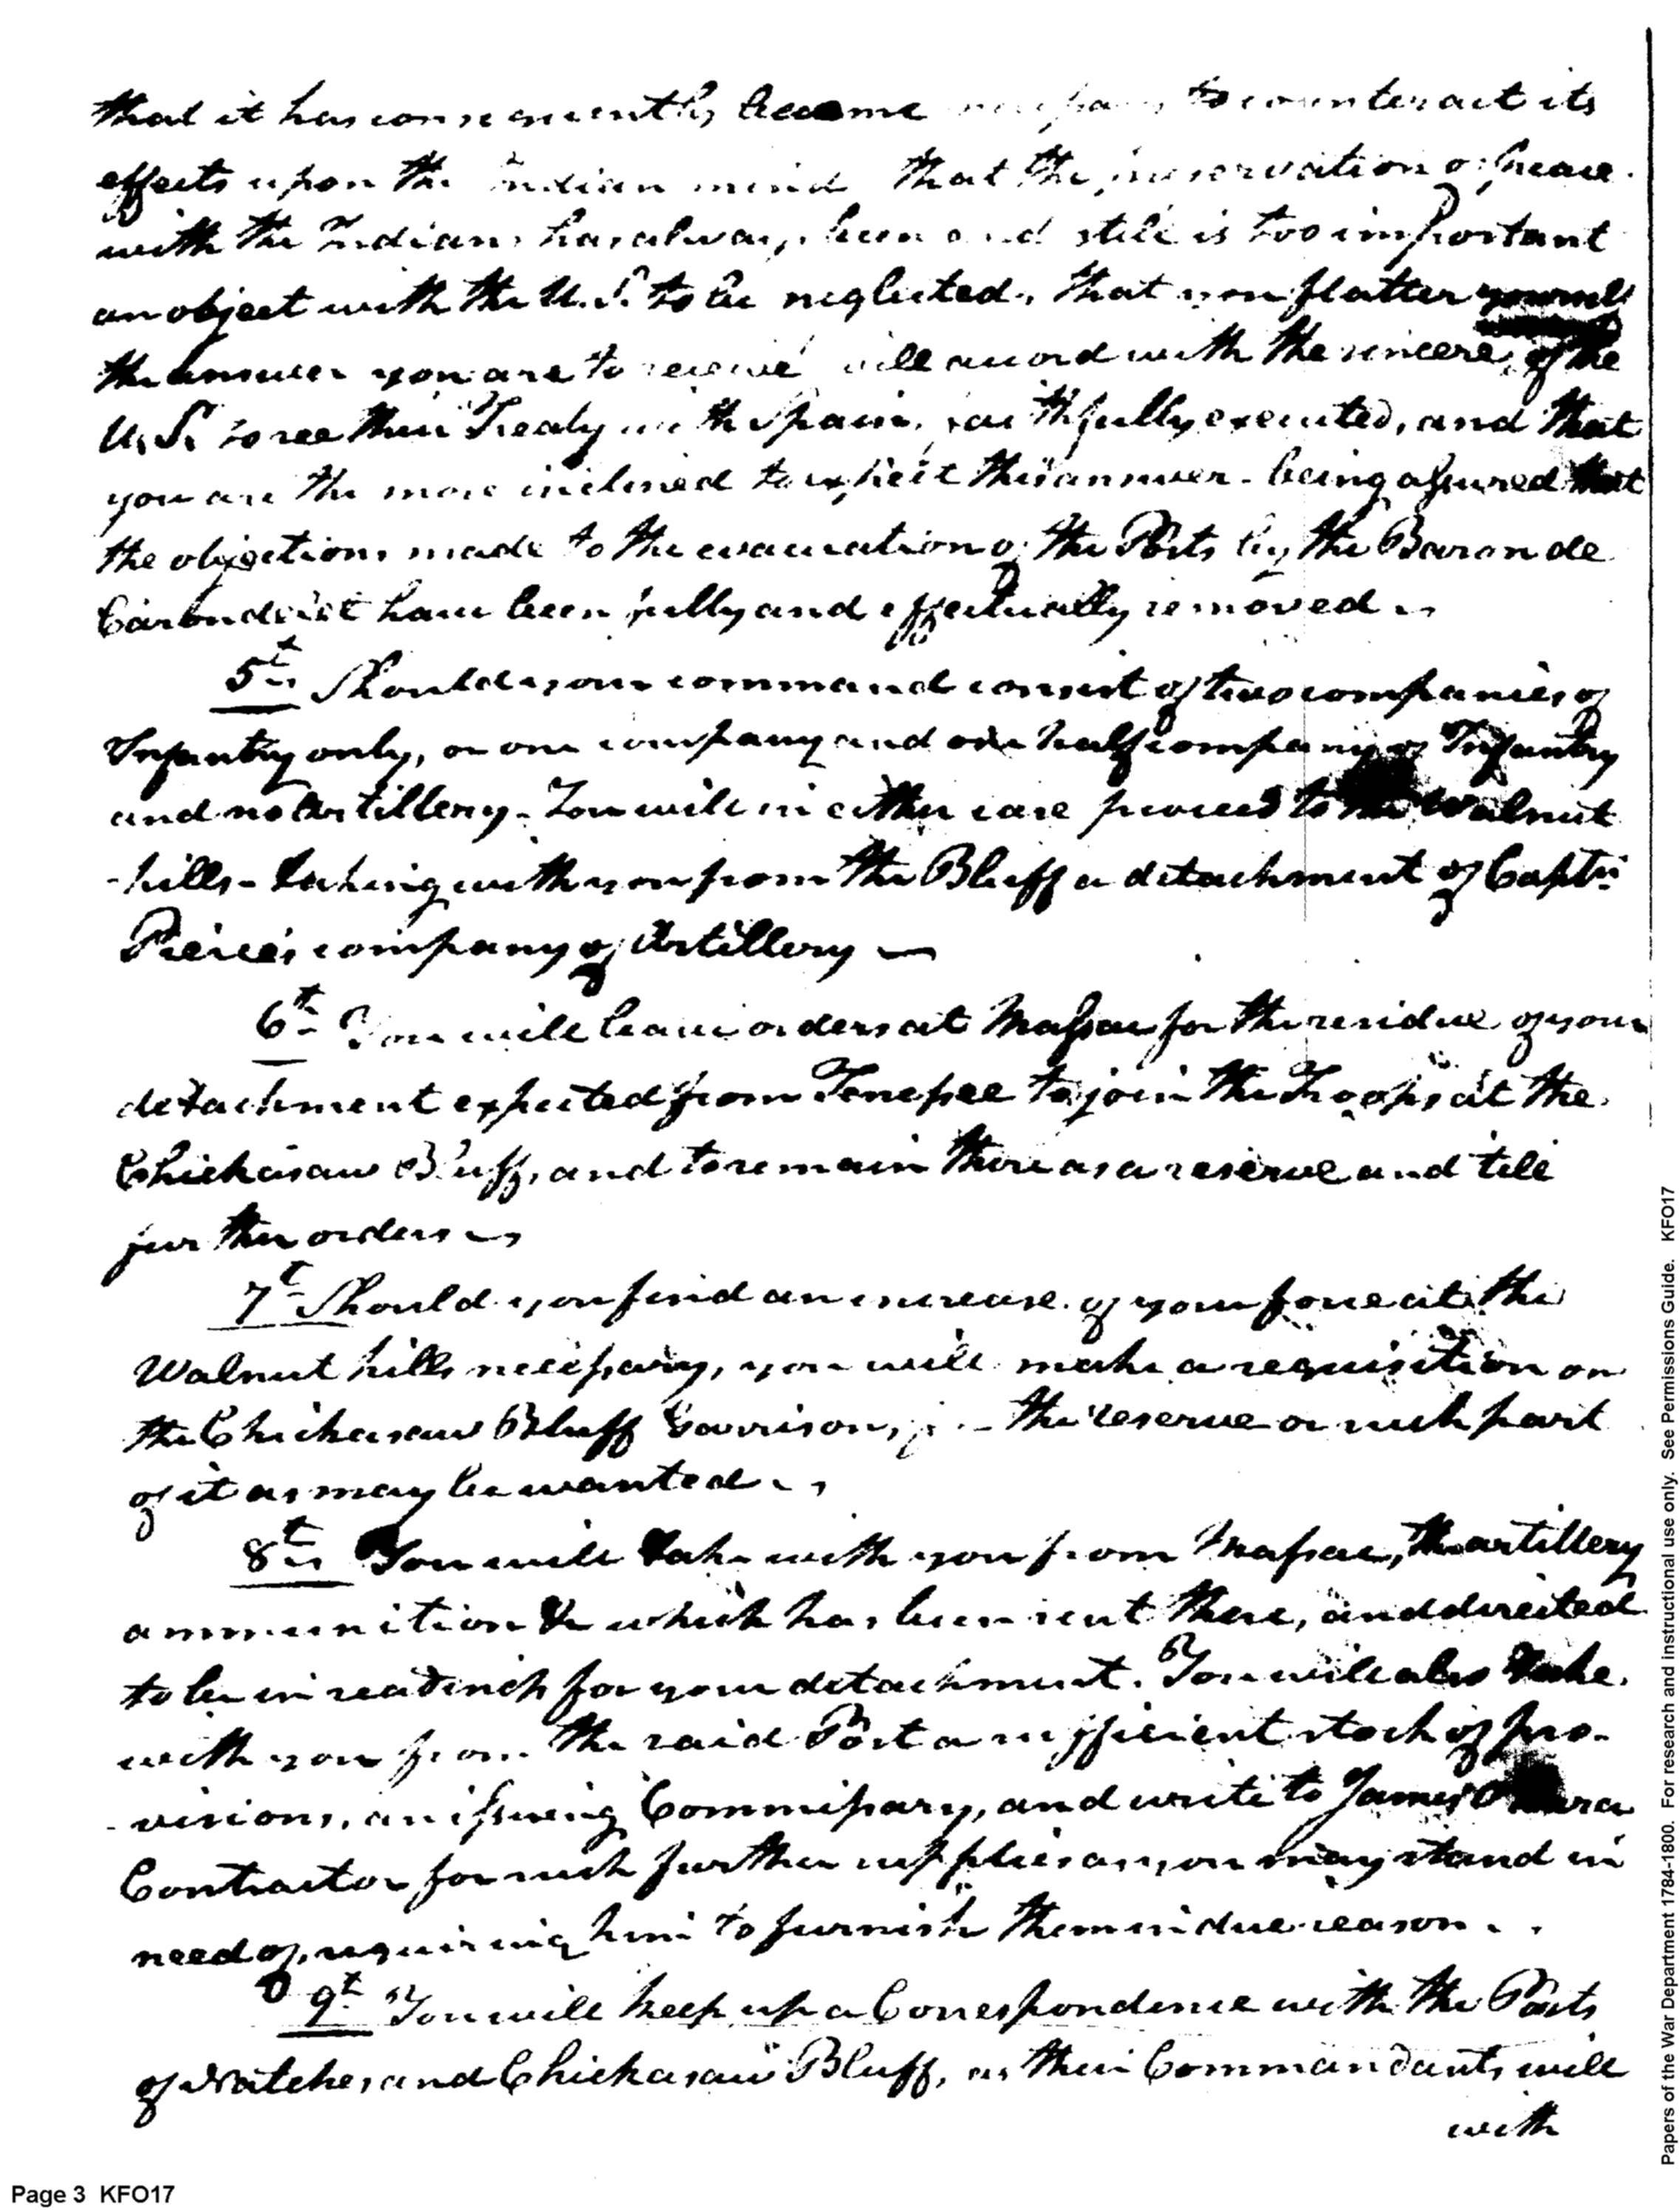 that it has consequently become necessary to counteract its
effects upon the Indian mind that the preservation of peace
with the Indians has always been and still is too important
an object with the U.S. to be neglected, that you flatter yourself
the answer you are to receive will accord with the sincere, of the
U.S. to see their Treaty with Spain, faithfully executed, and that
you are the more inclined to expect this answer - being assured that
the objections made to the evacuation of the Posts by the Baron de
Carondelet have been fully and effectually removed
5th Should your command consist of two companies of
Infantry only, or one company and one half company of Infantry
and no Artillery - You will in either case proceed to the Walnut
- hills - taking with you from the Bluff a detachment of Captn
Pierce's company of Artillery —
6th You will leave orders at Massac for the residue of your
detachment expected from Tenessee to join the Troops at the
Chickasaw Bluff, and to remain there as a reserve and till
further orders
7t Should you find an increase of your force at the
Walnut hills necessary, you will make a requisition on
the Chickasaw Bluff Garrison, for the reserve or such part
of it as may be wanted
8th You will take with you from Massac, the artillery
ammunition &c which has been sent there, and directed
to be in readiness for your detachment. You will also take
with you from the said Post a sufficient stock of pro-
- visions, an issuing Commissary, and write to James O'Hara
Contractor for such further supplies as you may stand in
need of, requiring him to furnish them in due season
9th You will keep up a Correspondence with the Posts
of Natches and Chickasaw Bluff, as their Commandants will
with
Page 3 KFO17
Papers of the War Department 1784-1800. For research and instructional use only. See Permissions Guide. KFO17